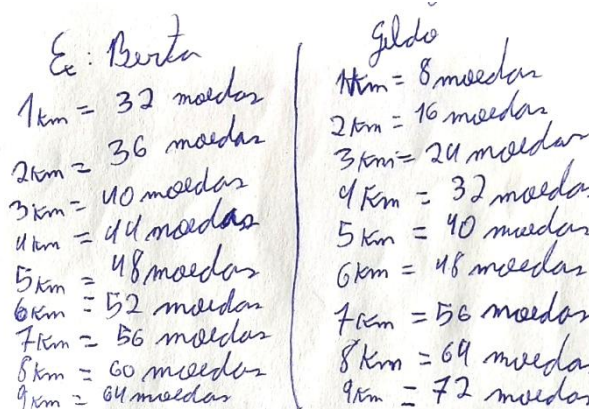 E: Berta
1km = 32 moedas
2km = 36 moedas
3km = 40 moedas
4km = 44 moedas
5km = 48 moedas
6km = 52 moedas
7km = 56 moedas
8km = 60 moedas
9km = 64 moedas
Gildo
1km = 8 moedas
2km = 16 moedas
3km = 24 moedas
4km = 32 moedas
5km = 40 moedas
6km = 48 moedas
7km = 56 moedas
8km = 64 moedas
9km = 72 moedas